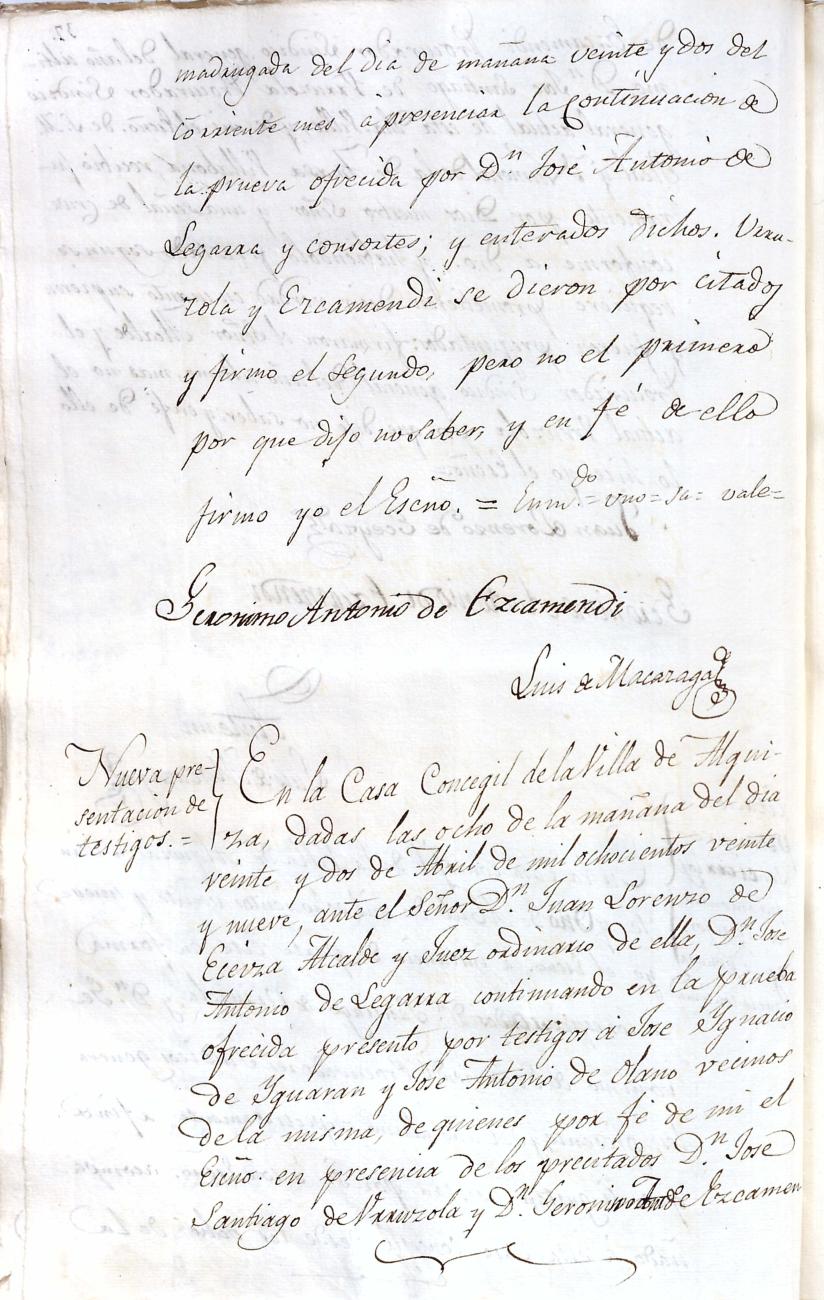 madrugada del dia de mañana veinte y dos del
corriente mes à presenciar la Continuacion de
la prueva ofrecida por D.n José Antonio de
Legarra y consortes; y enterados dichos. Urru-
zola y Ezcamendi se dieron por citados
y firmo el segundo, pero no el primero
por que dijo no saber, y en fé de ello
firmo yo el Escño. = Enm.do = uno = sa = vale =
Geronimo Antonio de Ezcamendi
Luis de Macazaga
Nueva pre-
sentacion de
testigos. =
En la Casa Concegil de la Villa de Alqui-
za, dadas las ocho de la mañana del dia
veinte y dos de Abril de mil ochocientos veinte
y nueve, ante el Señor D.n Juan Lorenzo de
Eceiza Alcalde y Juez ordinario de ella, D.n Jose
Antonio de Legarra continuando en la prueba
ofrecida presento por testigos à Jose Ygnacio
de Yguaran y Jose Antonio de Olano vecinos
de la misma, de quienes por fé de mi el
Escño. en presencia de los precitados D.n Jose
Santiago de Urruzola y D.n Geronimo Ant.o de Ezcamen